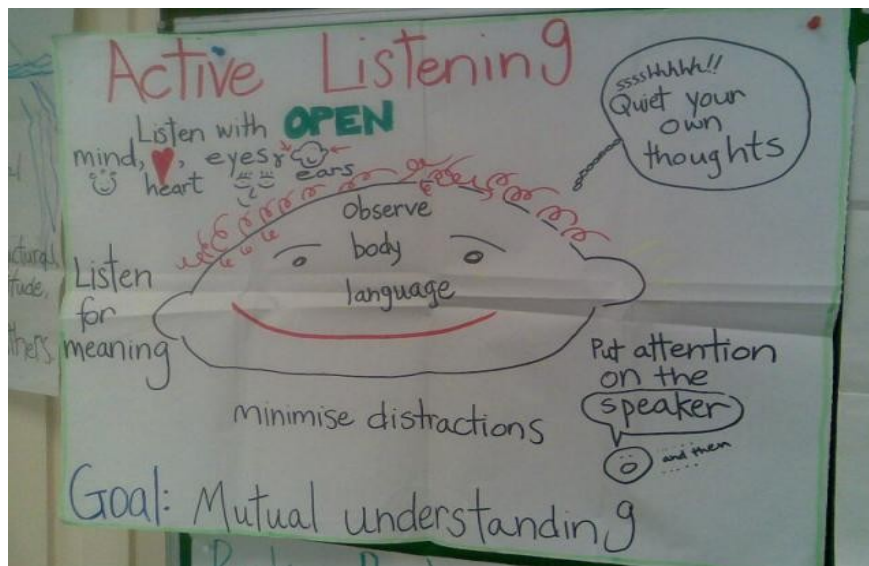 Active Listening
Listen with OPEN
mind, eyes &
heart ears
ssssHhhhh!!
Quiet your
own
thoughts
observe
body
language
Listen
for
meaning
Put attention
on the
speaker
and then
minimise distractions
Goal: Mutual understanding